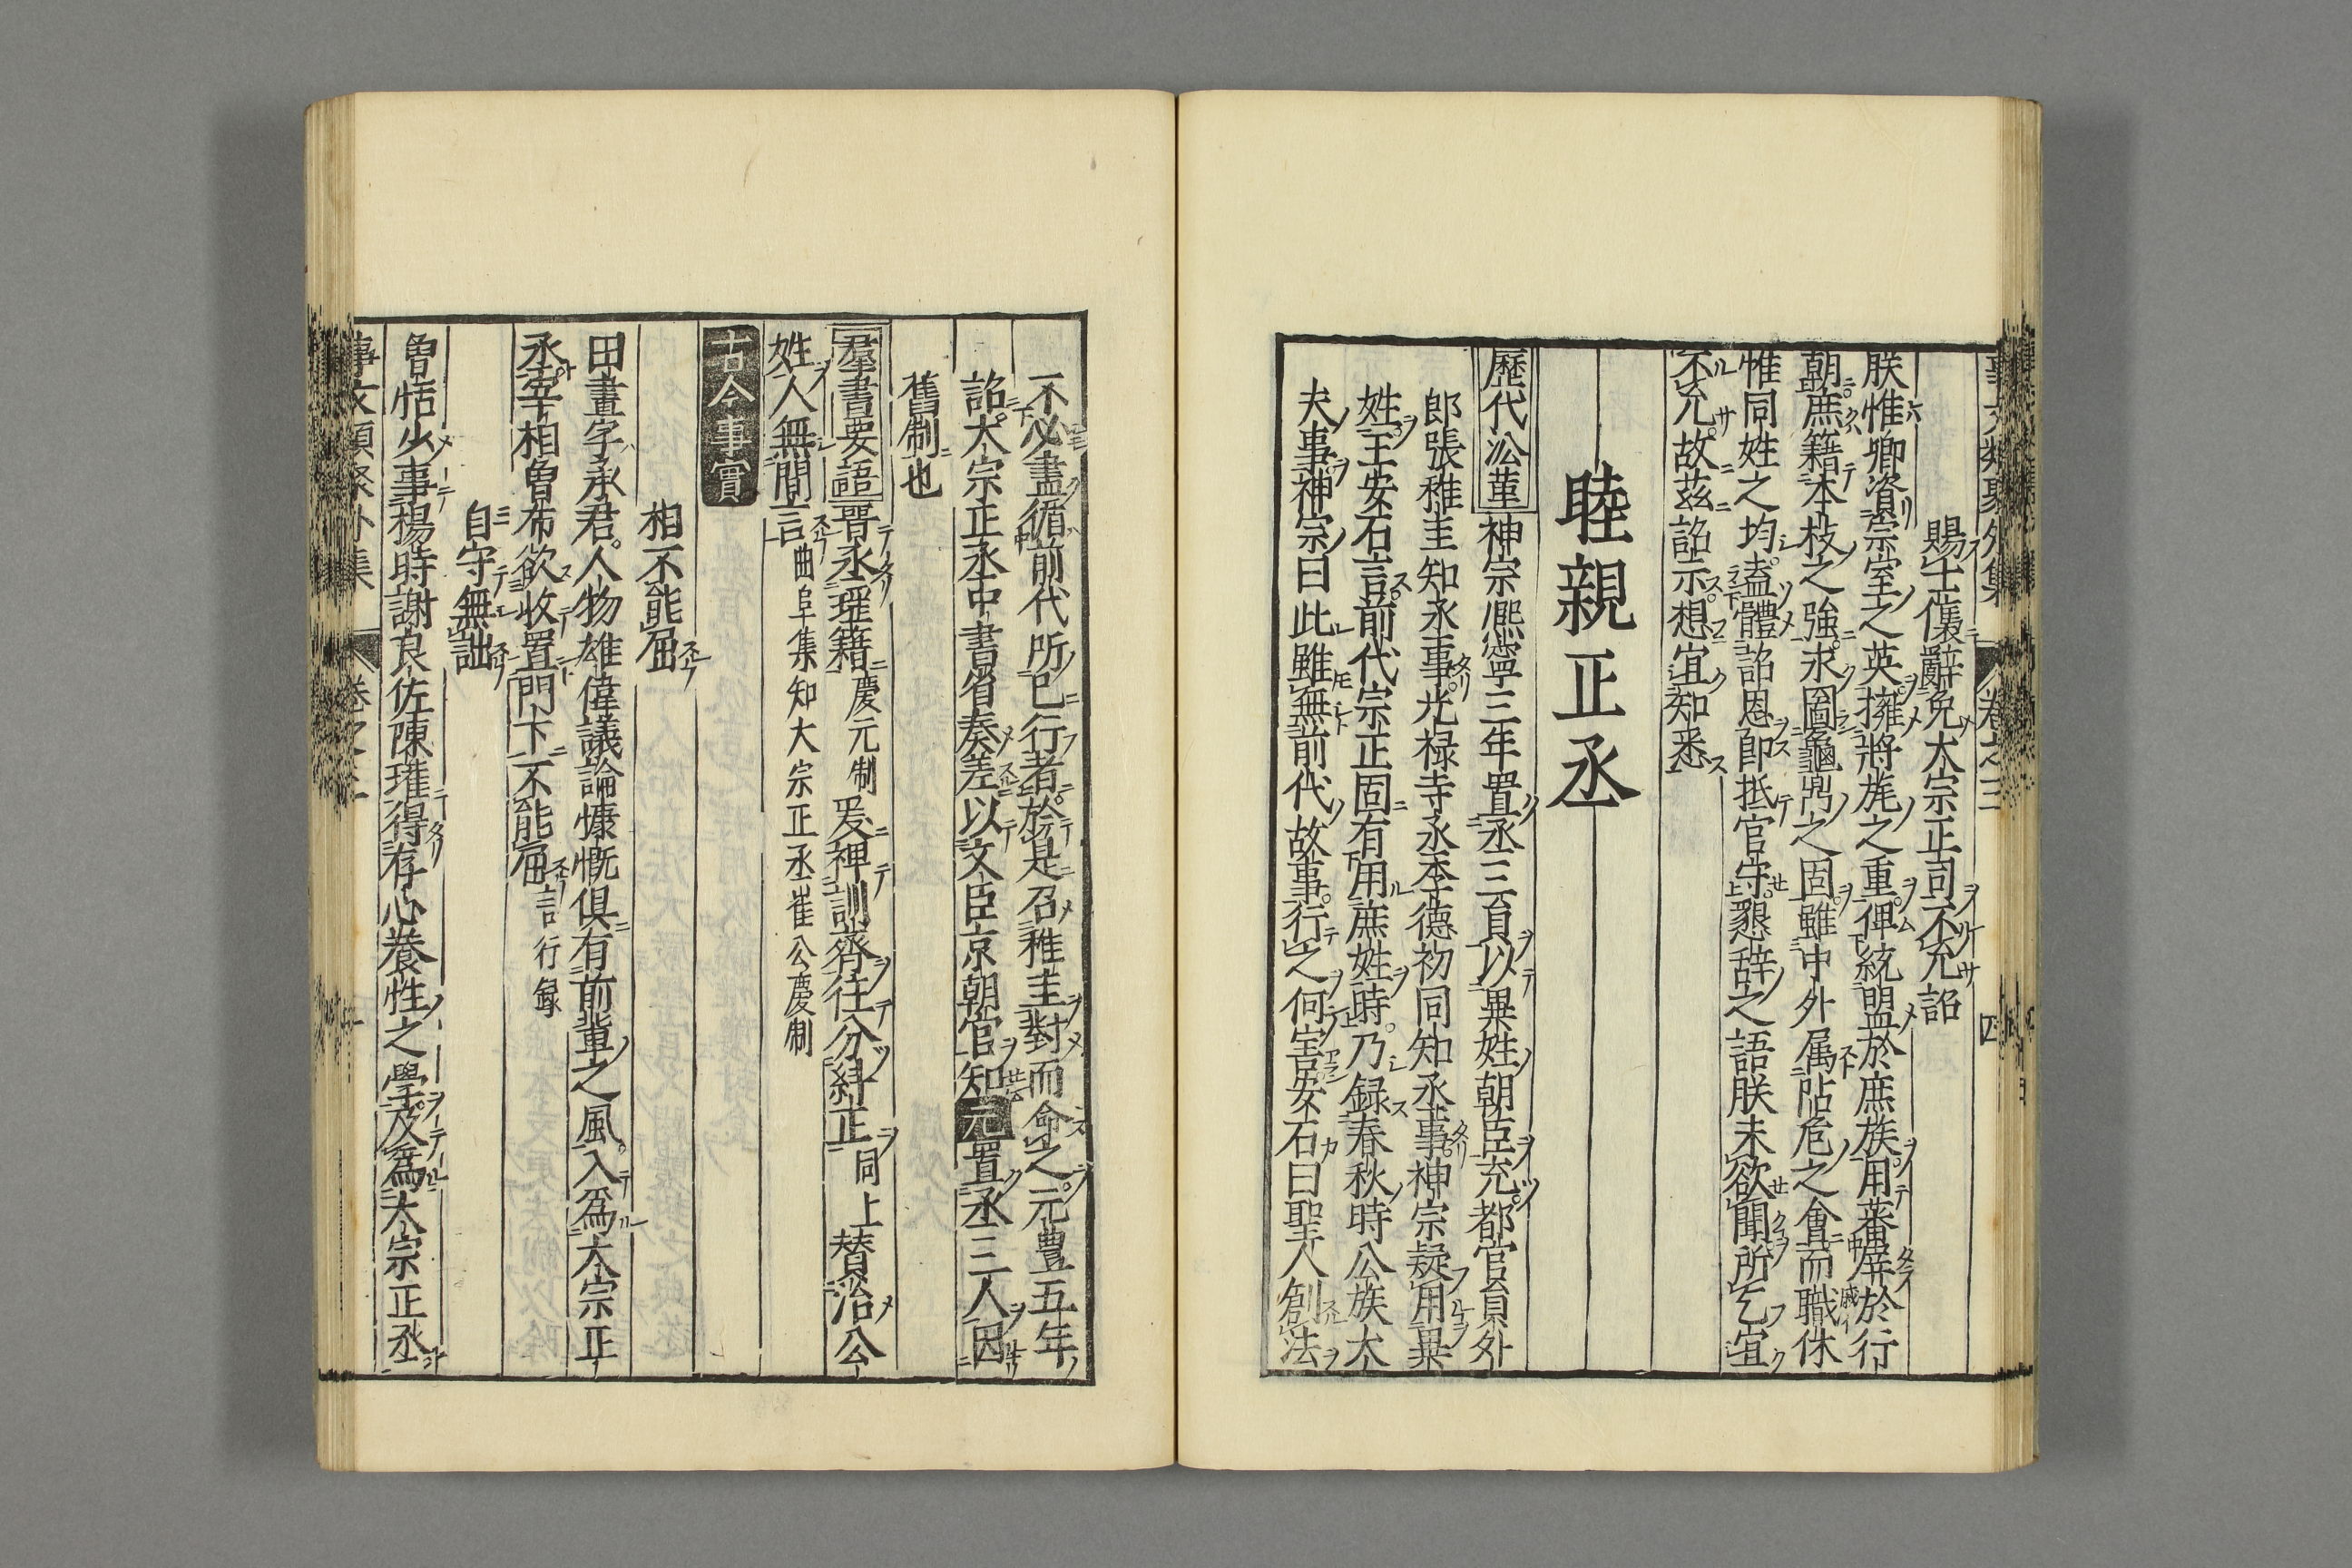 賜士㒟辭免大宗正司不允詔
朕惟卿資宗室之英擁將旄之重俾統盟於庶族用蕃屏於行
朝庶籍本枝之強求圖龜鼎之固雖中外属阽危之會而職休
惟同姓之均盍體詔恩即抵官守懇辞之語朕未欲聞所乞宜
不允故茲詔示想宜知悉
睦親正丞
歷代沿革神宗凞寧三年置丞二員以異姓朝臣充都官員外
郎張稚圭知丞事光禄寺丞李德初同知丞事神宗疑用異
姓王安石言前代宗正固有用庶姓時乃録春秋時公族大
夫事神宗曰此雖無前代故事行之何害安石曰聖人創法
不必盡循前代所已行者於是召稚圭對而命之元豊五年
詔大宗正丞中書省奏差以文臣京朝官知元置丞三人因
舊制也
羣書要語晋丞瑾籍慶元制爰裨訓齊往分糾正同上賛治公
姓人無間言曲阜集知大宗正丞崔公慶制
古今事實
相不能屈
田晝字承君人物雄偉議論慷慨俱有前輩之風入為大宗正
丞宰相魯布欲收置門下不能屈言行録
自守無詘
魯恬少事楊時謝良佐陳瓘得存心養性之學及為大宗正丞